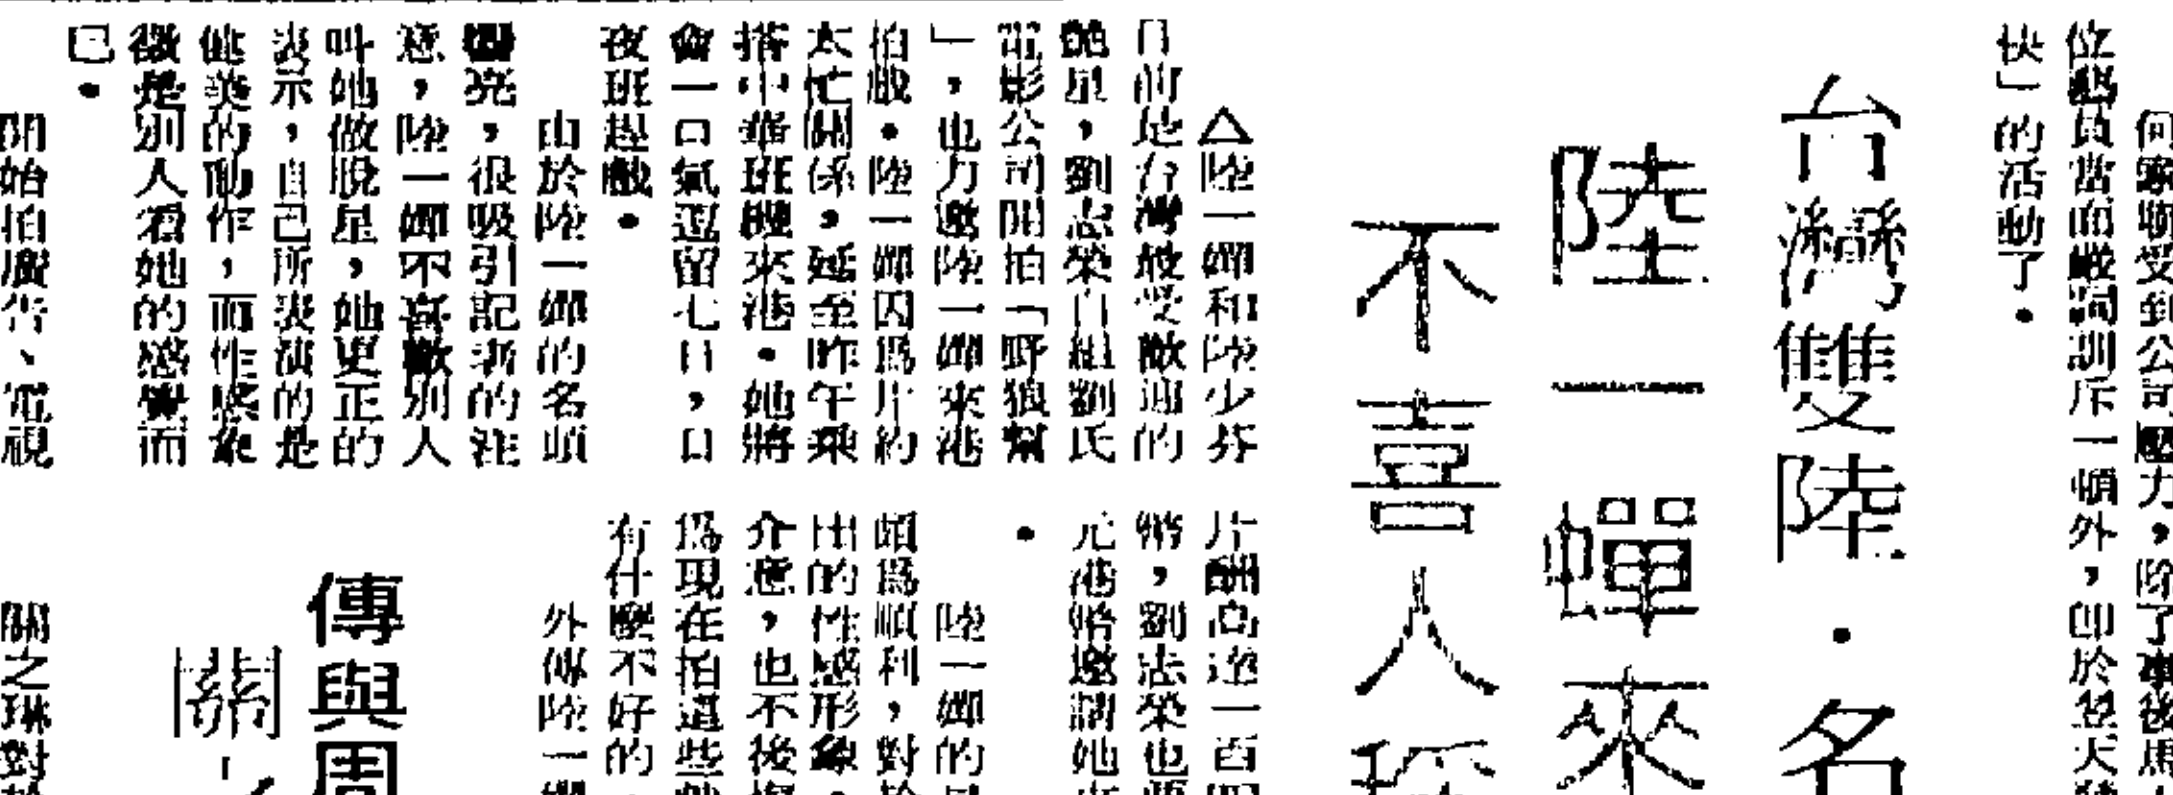 何家駒受到公司壓力，除了事後馬
位藝員當面嚴詞訓斥一頓外，即於翌天
快」的活動了．
台灣雙陸．名
陸一蟬來
不喜人
△陸一嬋和陸少芬
目前是台灣最受歡迎的
艷星，劉志榮自組劉氏
電影公司開拍「野狼幫
」，也力邀陸一嬋來港
拍戲．陸一嬋因為片約
太忙關係，延至昨午乘
搭中華班機來港．她將
會一口氣逗留七日，日
夜班趕戲．
由於陸一嬋的名頭
響亮，很吸引記者的注
意，陸一嬋不喜歡別人
叫她做脫星，她更正的
表示，自己所表演的是
健美的動作，而性感象
徵是別人看她的感覺而
已．
開始拍廣告、電視
片酬高達一百四
幣，劉志榮也要
元港幣邀請她來
．
陸一嬋的
頗為順利，對於
出的性感形象．
介意，也不後悔
為現在拍這些戲
有什麼不好的．
外傳陸一嬋
傳與周
關
關之琳對於